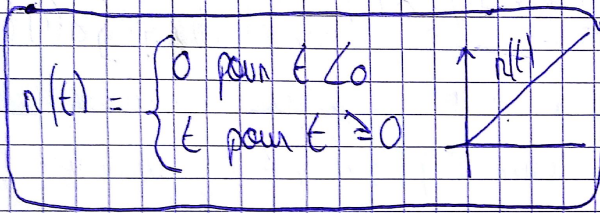 r(t) = { 0 pour t < 0
t pour t ≥ 0
r(t)